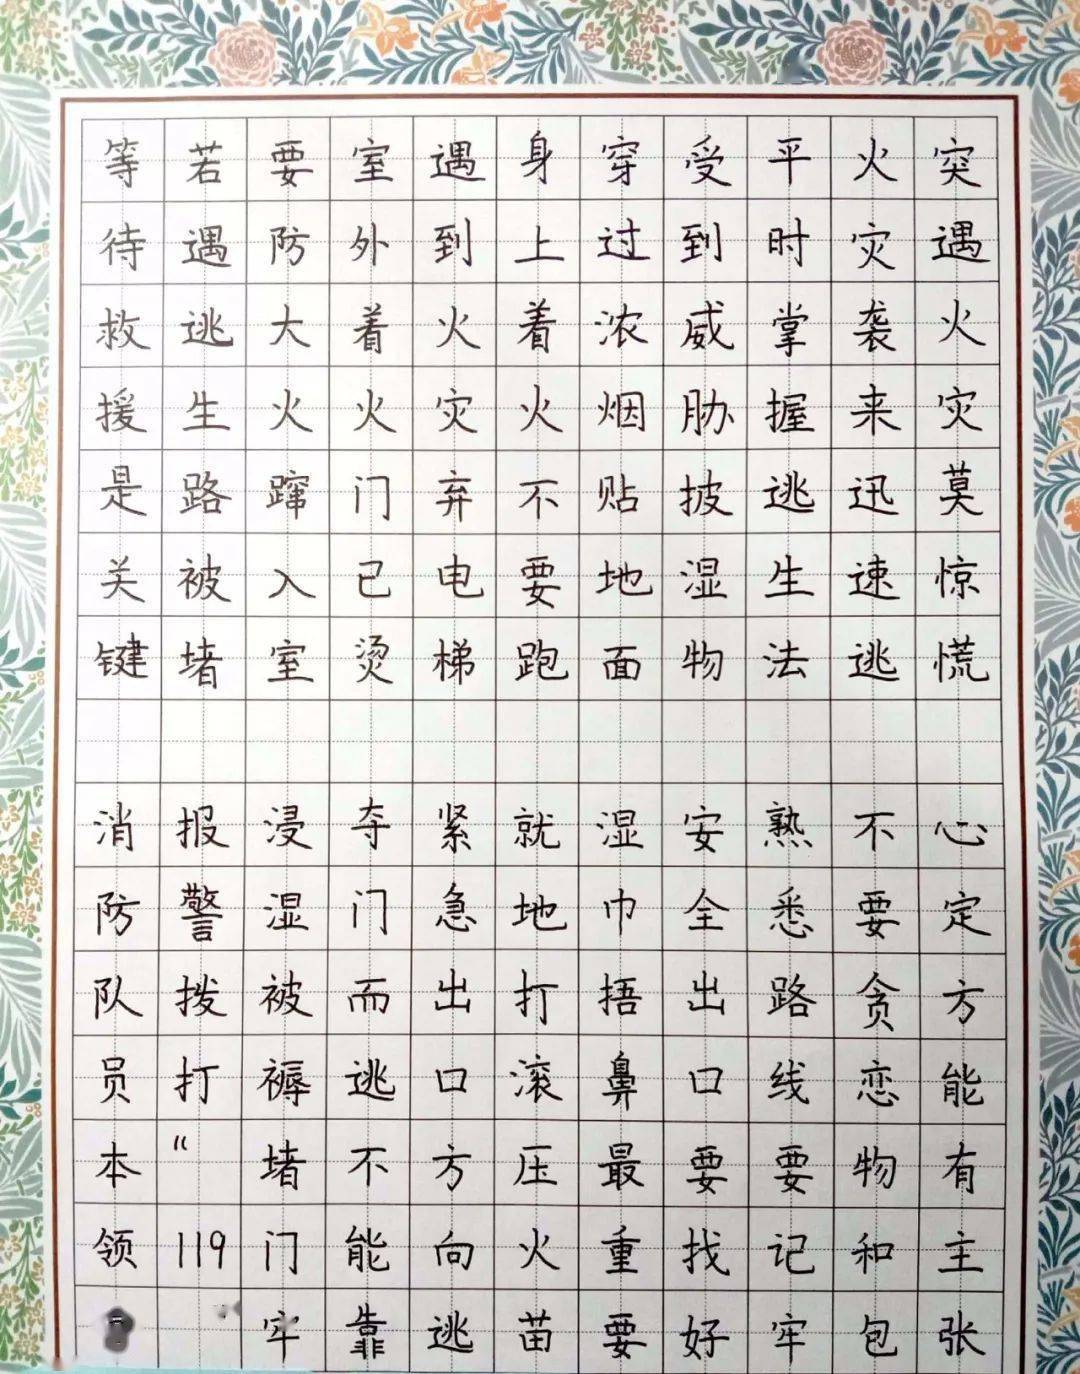 突遇火灾莫惊慌 心定方能有主张
火灾袭来迅速逃 不要贪恋物和包
平时掌握逃生法 熟悉路线要记牢
受到威胁披湿物 安全出口要找好
穿过浓烟贴地面 湿巾捂鼻最重要
身上着火不要跑 就地打滚压火苗
遇到火灾弃电梯 紧急出口方向逃
室外着火门已烫 夺门而逃不能靠
要防大火蹿入室 浸湿被褥堵门牢
若遇逃生路被堵 报警拨打“119
等待救援是关键 消防队员本领